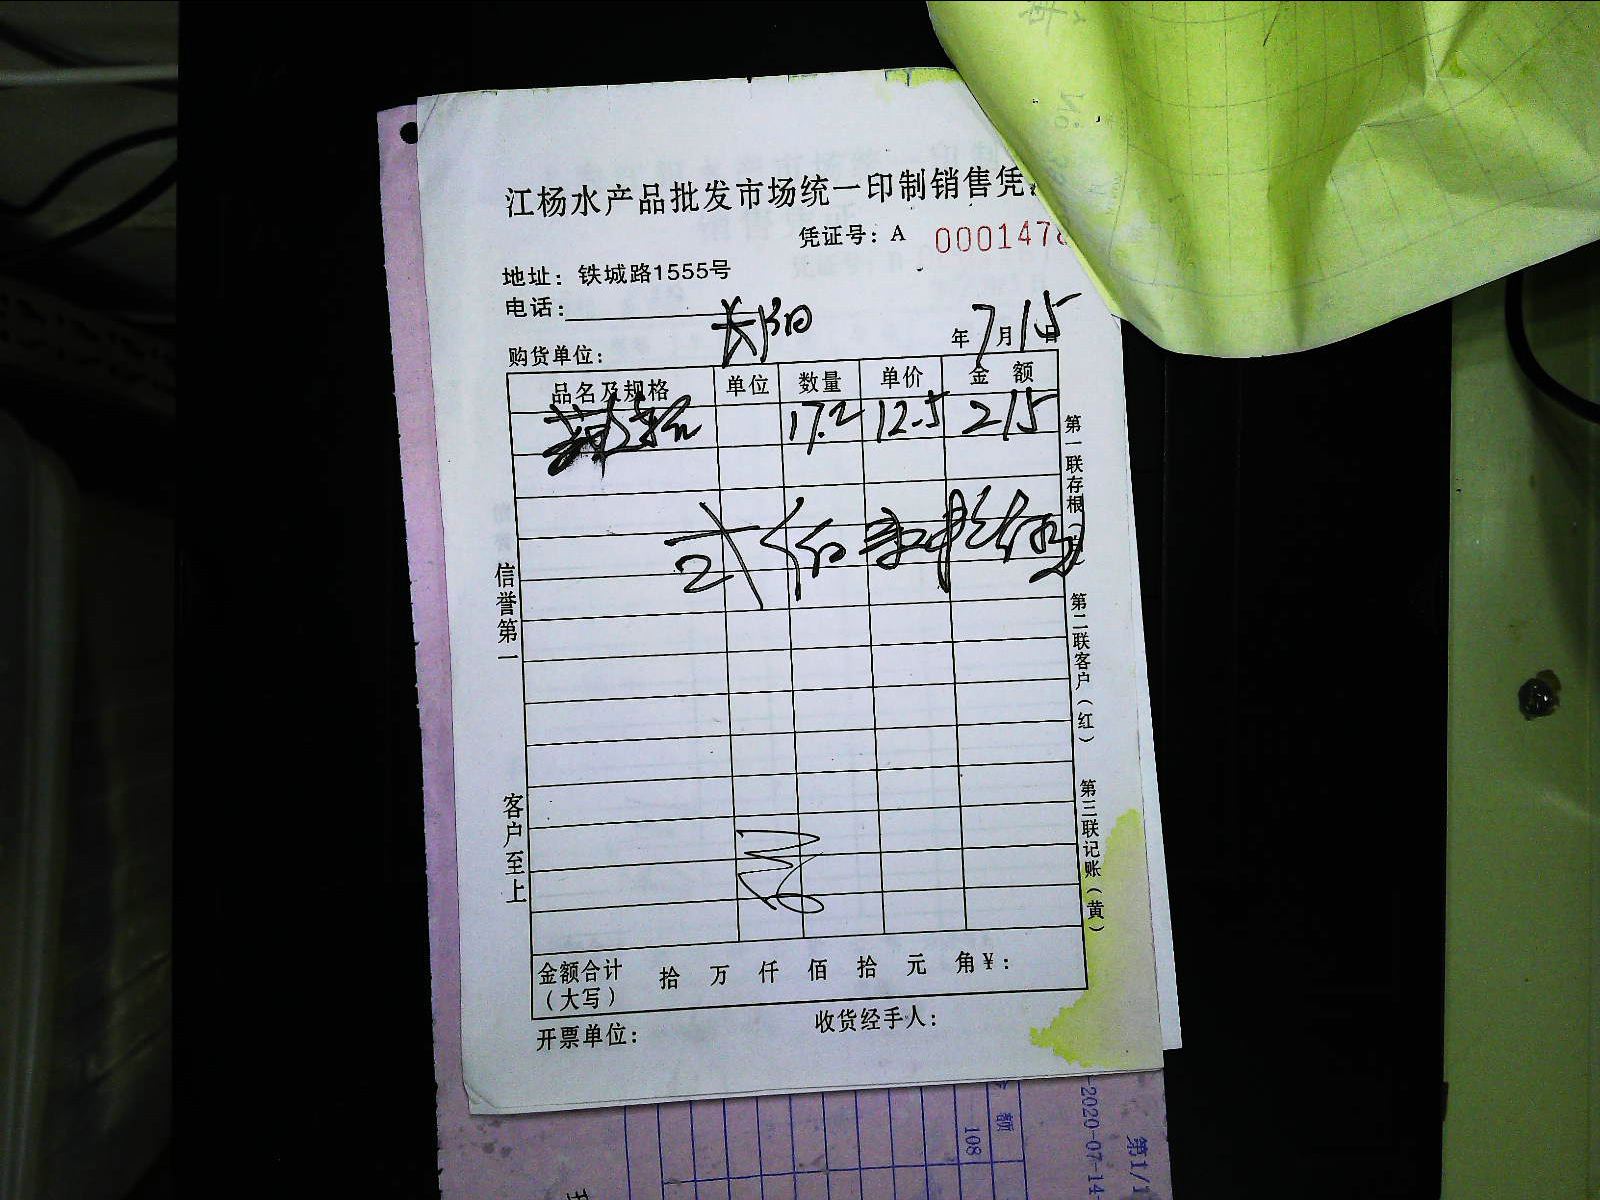 江杨水产品批发市场统一印制销售凭
凭证号：A 000147
地址：铁城路1555号
电话：
购货单位： 年 7 月 15 日
品名及规格 单位 数量 单价 金 额
17.2 12.5 215
信誉第一
客户至上
第一联存根
第二联客户（红）
第三联记账（黄）
金额合计（大写） 拾 万 仟 佰 拾 元 角 ¥：
开票单位： 收货经手人：
额
108
-2020-07-14-
第1/1